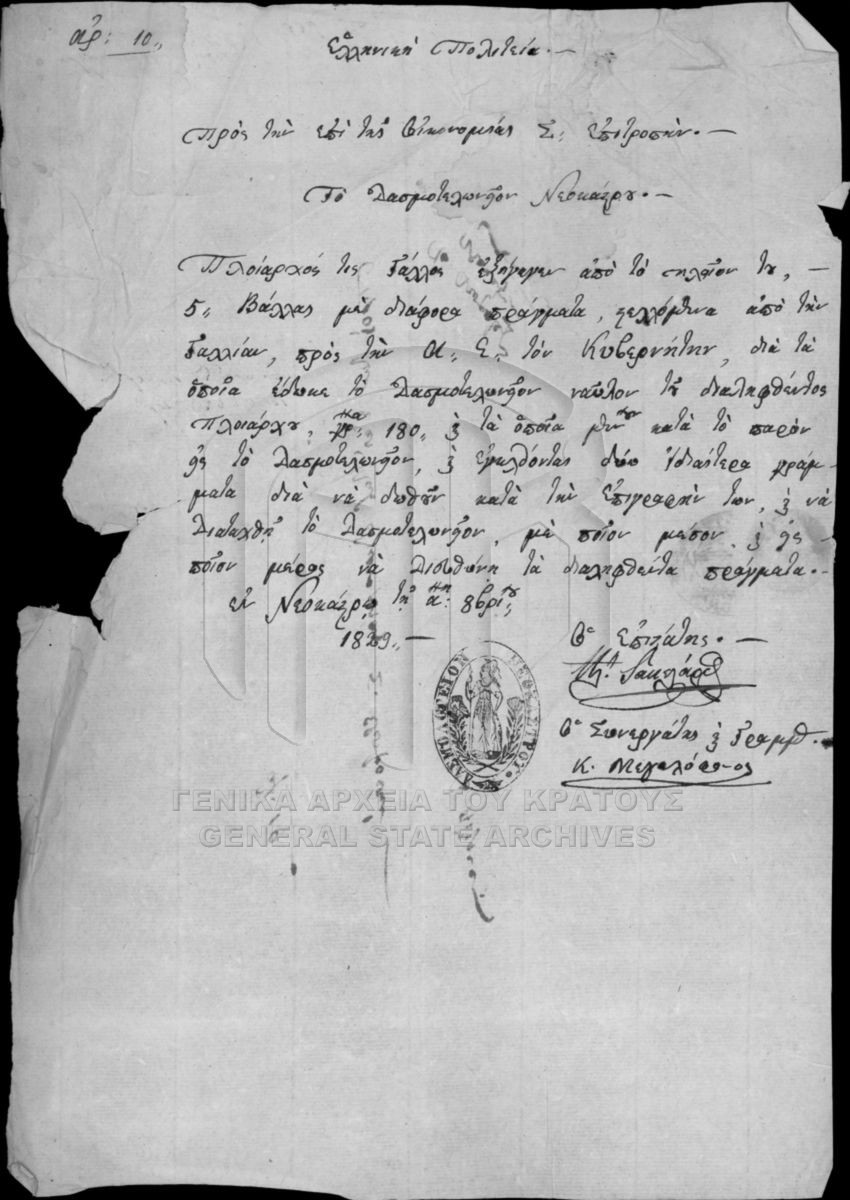 ἀρ: 10,,
Ἑλληνικὴ Πολιτεία.—
Πρὸς τὴν ἐπὶ τῆς Οἰκονομίας Σ: Ἐπιτροπὴν.—
Τὸ Δασμοτελωνεῖον Νεοκάστρου.—
Πλοίαρχός τις Γάλλος ἐξήγαγεν ἀπὸ τὸ πλοῖον του, —
5,, Βάλλας μὲ διάφορα πράγματα, στελλόμενα ἀπὸ τὴν
Γαλλίαν, πρὸς τὴν Α. Ε. τὸν Κυβερνήτην, διὰ τὰ
ὁποῖα ἔδωκε τὸ Δασμοτελωνεῖον ναῦλον τοῦ διαληφθέντος
Πλοιάρχου, 180,, ϗ τὰ ὁποῖα μένουν κατὰ τὸ παρὸν
εἰς τὸ Δασμοτελωνεῖον, ϗ ἐγκλείοντας δύω ἰδιαίτερα γράμ-
ματα διὰ νὰ δωθοῦν κατὰ τὴν ἐπιγραφὴν των, ϗ νὰ
Διαταχθῇ τὸ Δασμοτελωνεῖον, μὲ ποῖον μέσον, ϗ εἰς —
ποῖον μέρος νὰ Διευθύνῃ τὰ διαληφθέντα πράγματα.—
ἐν Νεοκάστρῳ τῇ α: 8βρίου,,
1829,,—
Ὁ Ἐπιστάτης.—
Ὁ Συνεργάτης ϗ Γραμμ.
Κ. Μεγαλόπουλος
ΝΕΟΚΑΣΤΡΟΥ
ΓΕΝΙΚΑ ΑΡΧΕΙΑ ΤΟΥ ΚΡΑΤΟΥΣ
GENERAL STATE ARCHIVES